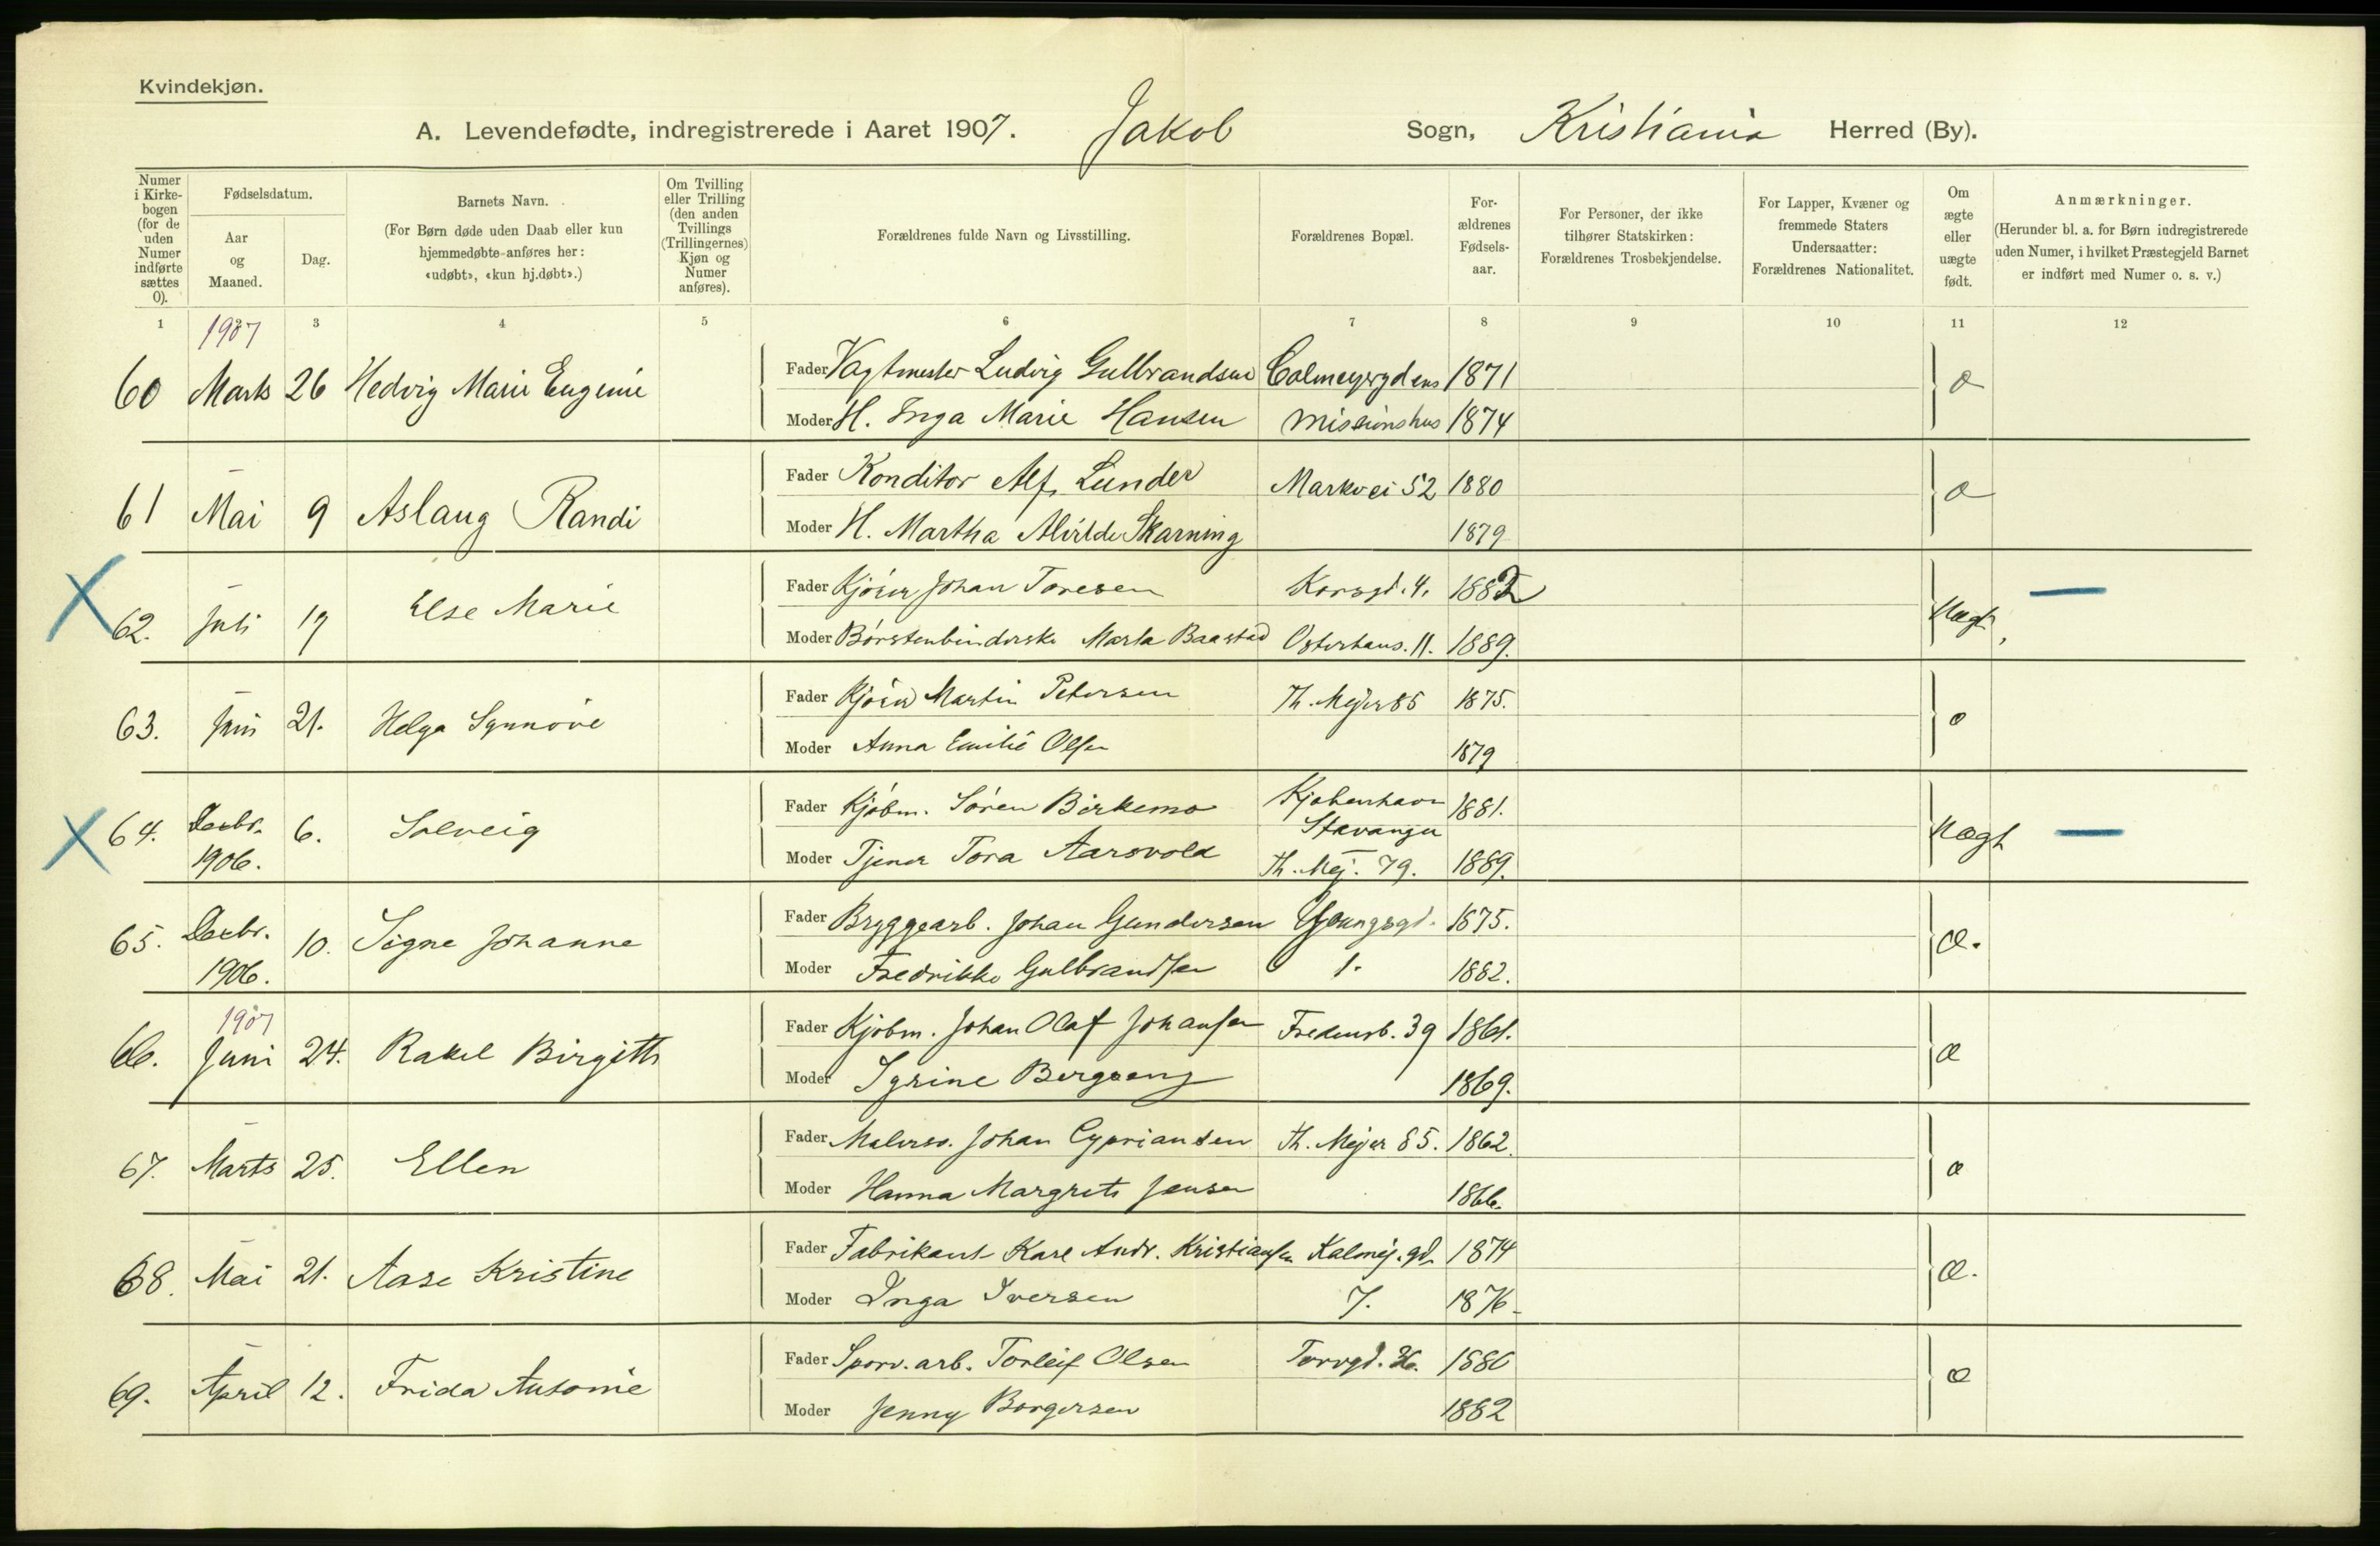 Kvindekjøn.
A. Levendefødte, indregistrerede i Aaret 1907. Jakob Sogn, Kristiania Herred (By).
Numer i Kirkebogen (for de uden Numer indførte sættes 0).
Fødselsdatum.
Aar og Maaned.
Dag.
Barnets Navn.
(For Børn døde uden Daab eller kun hjemmedøbte anføres her: «udøbt», «kun hj.døbt».)
Om Tvilling eller Trilling (den anden Tvillings (Trillingernes) Kjøn og Numer anføres).
Forældrenes fulde Navn og Livsstilling.
Forældrenes Bopæl.
Forældrenes Fødselsaar.
For Personer, der ikke tilhører Statskirken: Forældrenes Trosbekjendelse.
For Lapper, Kvæner og fremmede Staters Undersaatter: Forældrenes Nationalitet.
Om ægte eller uægte født.
Anmærkninger.
(Herunder bl. a. for Børn indregistrerede uden Numer, i hvilket Præstegjeld Barnet er indført med Numer o. s. v.)
1 2 3 4 5 6 7 8 9 10 11 12
1907
60 Marts 26 Hedvig Marie Eugenie Fader Vagtmester Ludvig Gulbrandsen Calmeyergdens 1871 æ
Moder H. Inga Marie Hansen Missionshus 1874
61 Mai 9 Aslaug Randi Fader Konditor Alf Lunder Markvei 52 1880 æ
Moder H. Martha Skarning 1879
X 62. Juli 17 Else Marie Fader Kjører Johan Toresen Korsgd. 4. 1882 Uægt, —
Moder Børstenbinderske Marta Baastad Osterhaus. 11. 1889.
63. Juni 21. Helga Synnøve Fader Kjører Martin Petersen Th. Mejer 85 1875. æ
Moder Anna Emilie Olsen 1879
X 64. Decbr. 1906. 6. Solveig Fader Kjøbm. Søren Birkemo Kjøbenhavn 1881. Uægt —
Stavanger
Moder Tjener Tora Aarsvold Th. Mej. 79. 1889.
65. Decbr. 1906. 10. Signe Johanne Fader Bryggearb. Johan Gundersen Youngsgd. 1875. æ.
Moder Fredrikke Gulbrandsen 1. 1882.
1907
66. Juni 24. Rakel Birgitte Fader Kjøbm. Johan Olaf Johansen Fredensb. 39 1861. æ
Moder Syrine Bergseng 1869.
67. Marts 25. Ellen Fader Malersv. Johan Cypriansen Th. Mejer 85. 1862. æ
Moder Hanna Margrete Jensen 1866.
68. Mai 21. Aase Kristine Fader Fabrikant Karl Andr. Kristiansen Kalmej. gd. 1874 æ.
Moder Inga Iversen 7. 1876
69. April 12. Frida Antonie Fader Sporv. arb. Torleif Olsen Torvgd. 1880 æ
Moder Jenny Borgersen 1882